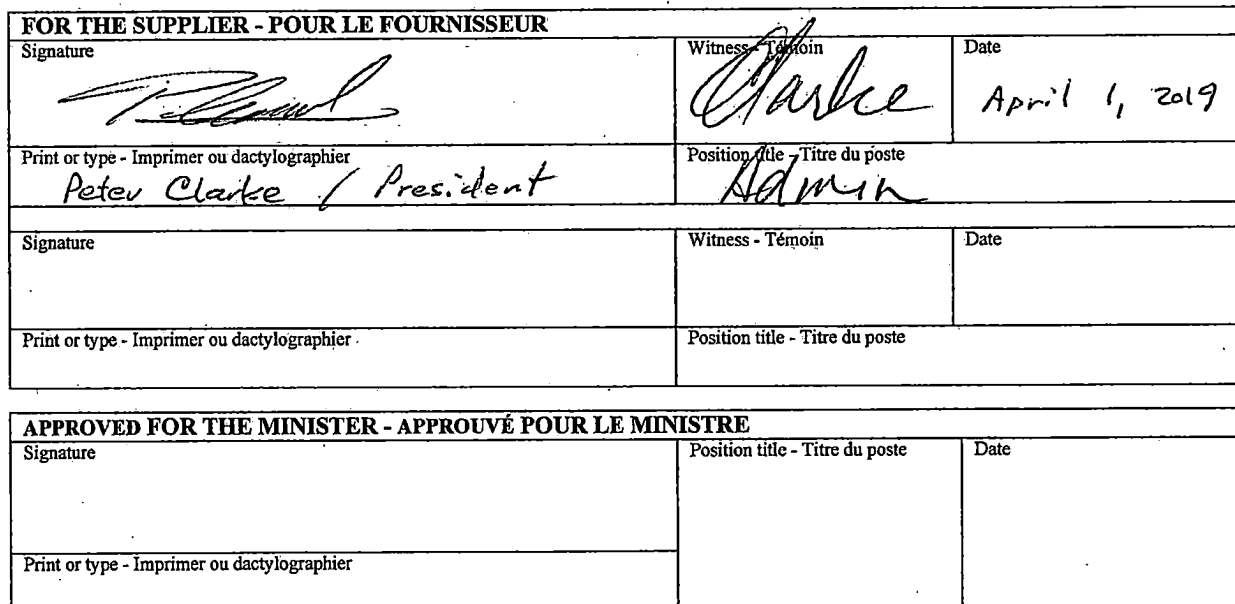 FOR THE SUPPLIER - POUR LE FOURNISSEUR
Signature
Witness - Témoin
Clarke
Date
April 1, 2019
Print or type - Imprimer ou dactylographier
Peter Clarke / President
Position title - Titre du poste
Admin
Signature
Witness - Témoin
Date
Print or type - Imprimer ou dactylographier
Position title - Titre du poste
APPROVED FOR THE MINISTER - APPROUVÉ POUR LE MINISTRE
Signature
Position title - Titre du poste
Date
Print or type - Imprimer ou dactylographier